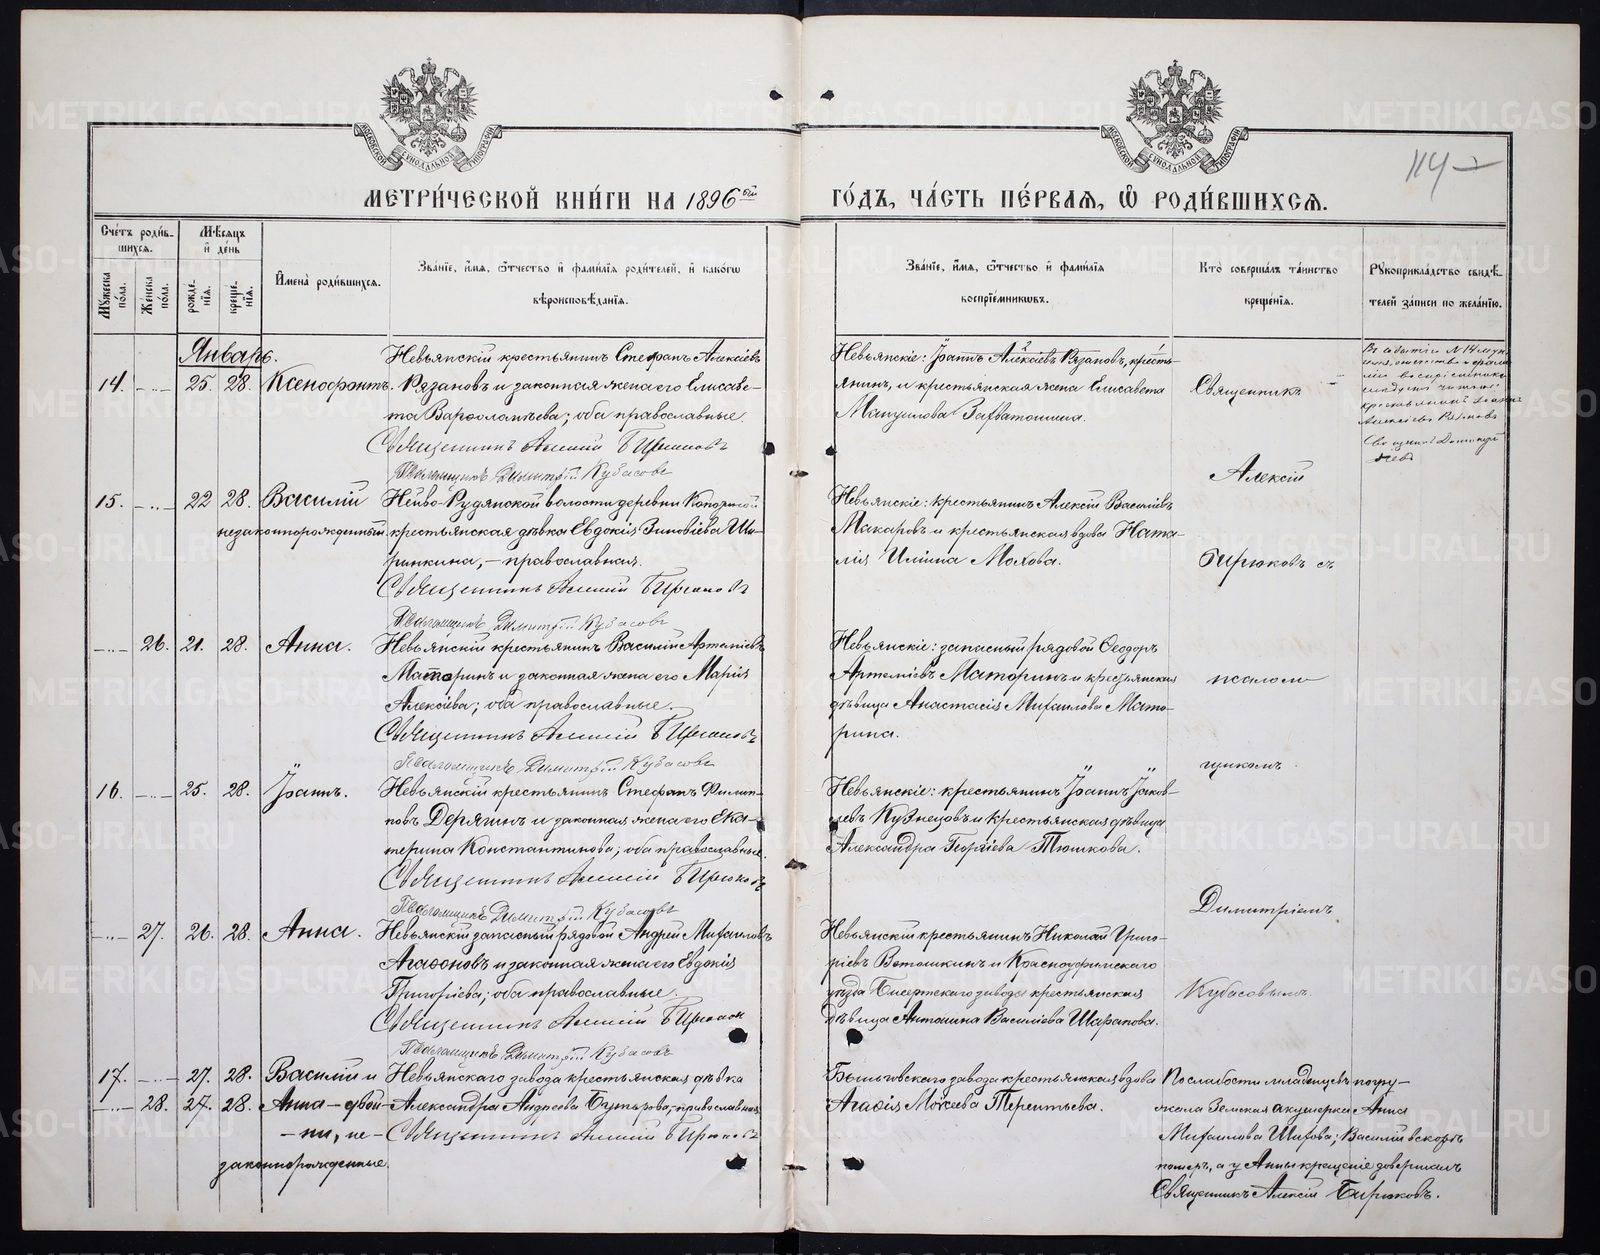 114
МЕТРИ́ЧЕСКОЙ КНИ́ГИ НА 1896ой
ГО́ДЪ, ЧА́СТЬ ПЕ́РВАЯ, Ѡ РОДИ́ВШИХСЯ.
Сче́тъ роди́в-
шихся.
Мѣсяцъ
и де́нь
Мꙋжеска по́ла.
Женска по́ла.
рожде-
нїя.
креще-
нїя.
Имена роди́вшихся.
Зва́нїе, и́мя, ѻ́тчество и фами́лїя роди́телей, и како́гѡ
вѣроисповѣ́данїя.
Зва́нїе, и́мя, ѻ́тчество и фами́лїя
воспрїе́мниковъ.
Кто̀ соверша́лъ та́инство
креще́нїя.
Рꙋкоприкла́дство свидѣ́-
телей за́писи по жела́нїю.
Январь.
14. 25. 28. Ксенофонтъ.
Невьянскій крестьянинъ Стефанъ Алексіевъ
Рязановъ и законная жена его Елисаве-
та Варѳоломѣева; оба православные.
Священникъ Алексій Бирюковъ
Псаломщикъ Димитрій Кубасовъ
Невьянскіе: Іоаннъ Алексіевъ Рязановъ, кресть-
янинъ, и крестьянская жена Елисавета
15. 22 28. Василій
незаконнорожденный.
Нейво-Рудянской волости деревни
крестьянская дѣвка Евдокія Зиновіева Ши-
ринкина, – православная.
Священникъ Алексій Бирюковъ
Псаломщикъ Димитрій Кубасовъ
Невьянскіе: крестьянинъ Алексій Василіевъ
Макаровъ и крестьянская вдова Ната-
лія Иліина Мохова.
26. 21. 28. Анна.
Невьянскій крестьянинъ Василій Артеміевъ
Маторинъ и законная жена его Марія
Алексіева; оба православные.
Священникъ Алексій Бирюковъ
Псаломщикъ Димитрій Кубасовъ
Невьянскіе: запасный рядовой Ѳеодоръ
Артеміевъ Маторинъ и крестьянская
дѣвица Анастасія Михаилова Мато-
рина.
16. 25. 28. Іоаннъ.
Невьянскій крестьянинъ Стефанъ Филип-
повъ Дерягинъ и законная жена его Ека-
терина Константинова; оба православные.
Священникъ Алексій Бирюковъ
Псаломщикъ Димитрій Кубасовъ
Невьянскіе: крестьянинъ Іоаннъ Іаков-
левъ Кузнецовъ и крестьянская дѣвица
Александра Георгіева Тюшкова.
27. 26. 28. Анна.
Невьянскій запасный рядовой Андрей Михаиловъ
Агаѳоновъ и законная жена его Евдокія
Григоріева; оба православные.
Священникъ Алексій Бирюков
Псаломщикъ Димитрій Кубасовъ
Невьянскій крестьянинъ Николай Григо-
ріевъ Ветошкинъ и Красноуфимскаго
уѣзда Бисертскаго завода крестьянская
дѣвица Антонина Василіева Шарапова.
17. 27. 28. Василій и
28. 27. 28. Анна – двой-
ни, не-
законнорожденные.
Невьянскаго завода крестьянская дѣвка
Александра Андреева православная
Священникъ Алексій Бирюковъ
Быньговскаго завода крестьянская вдова
Агаѳія Моѵсеева Терентьева.
Священникъ
Алексій
Бирюковъ съ
псалом-
щикомъ
Димитріемъ
Кубасовымъ.
По слабости младенцевъ погру-
жала Земская акушерка Анна
Михаилова Шифова; Василій вскорѣ
померъ, а у Анны крещеніе довершалъ
Священникъ Алексій Бирюковъ.